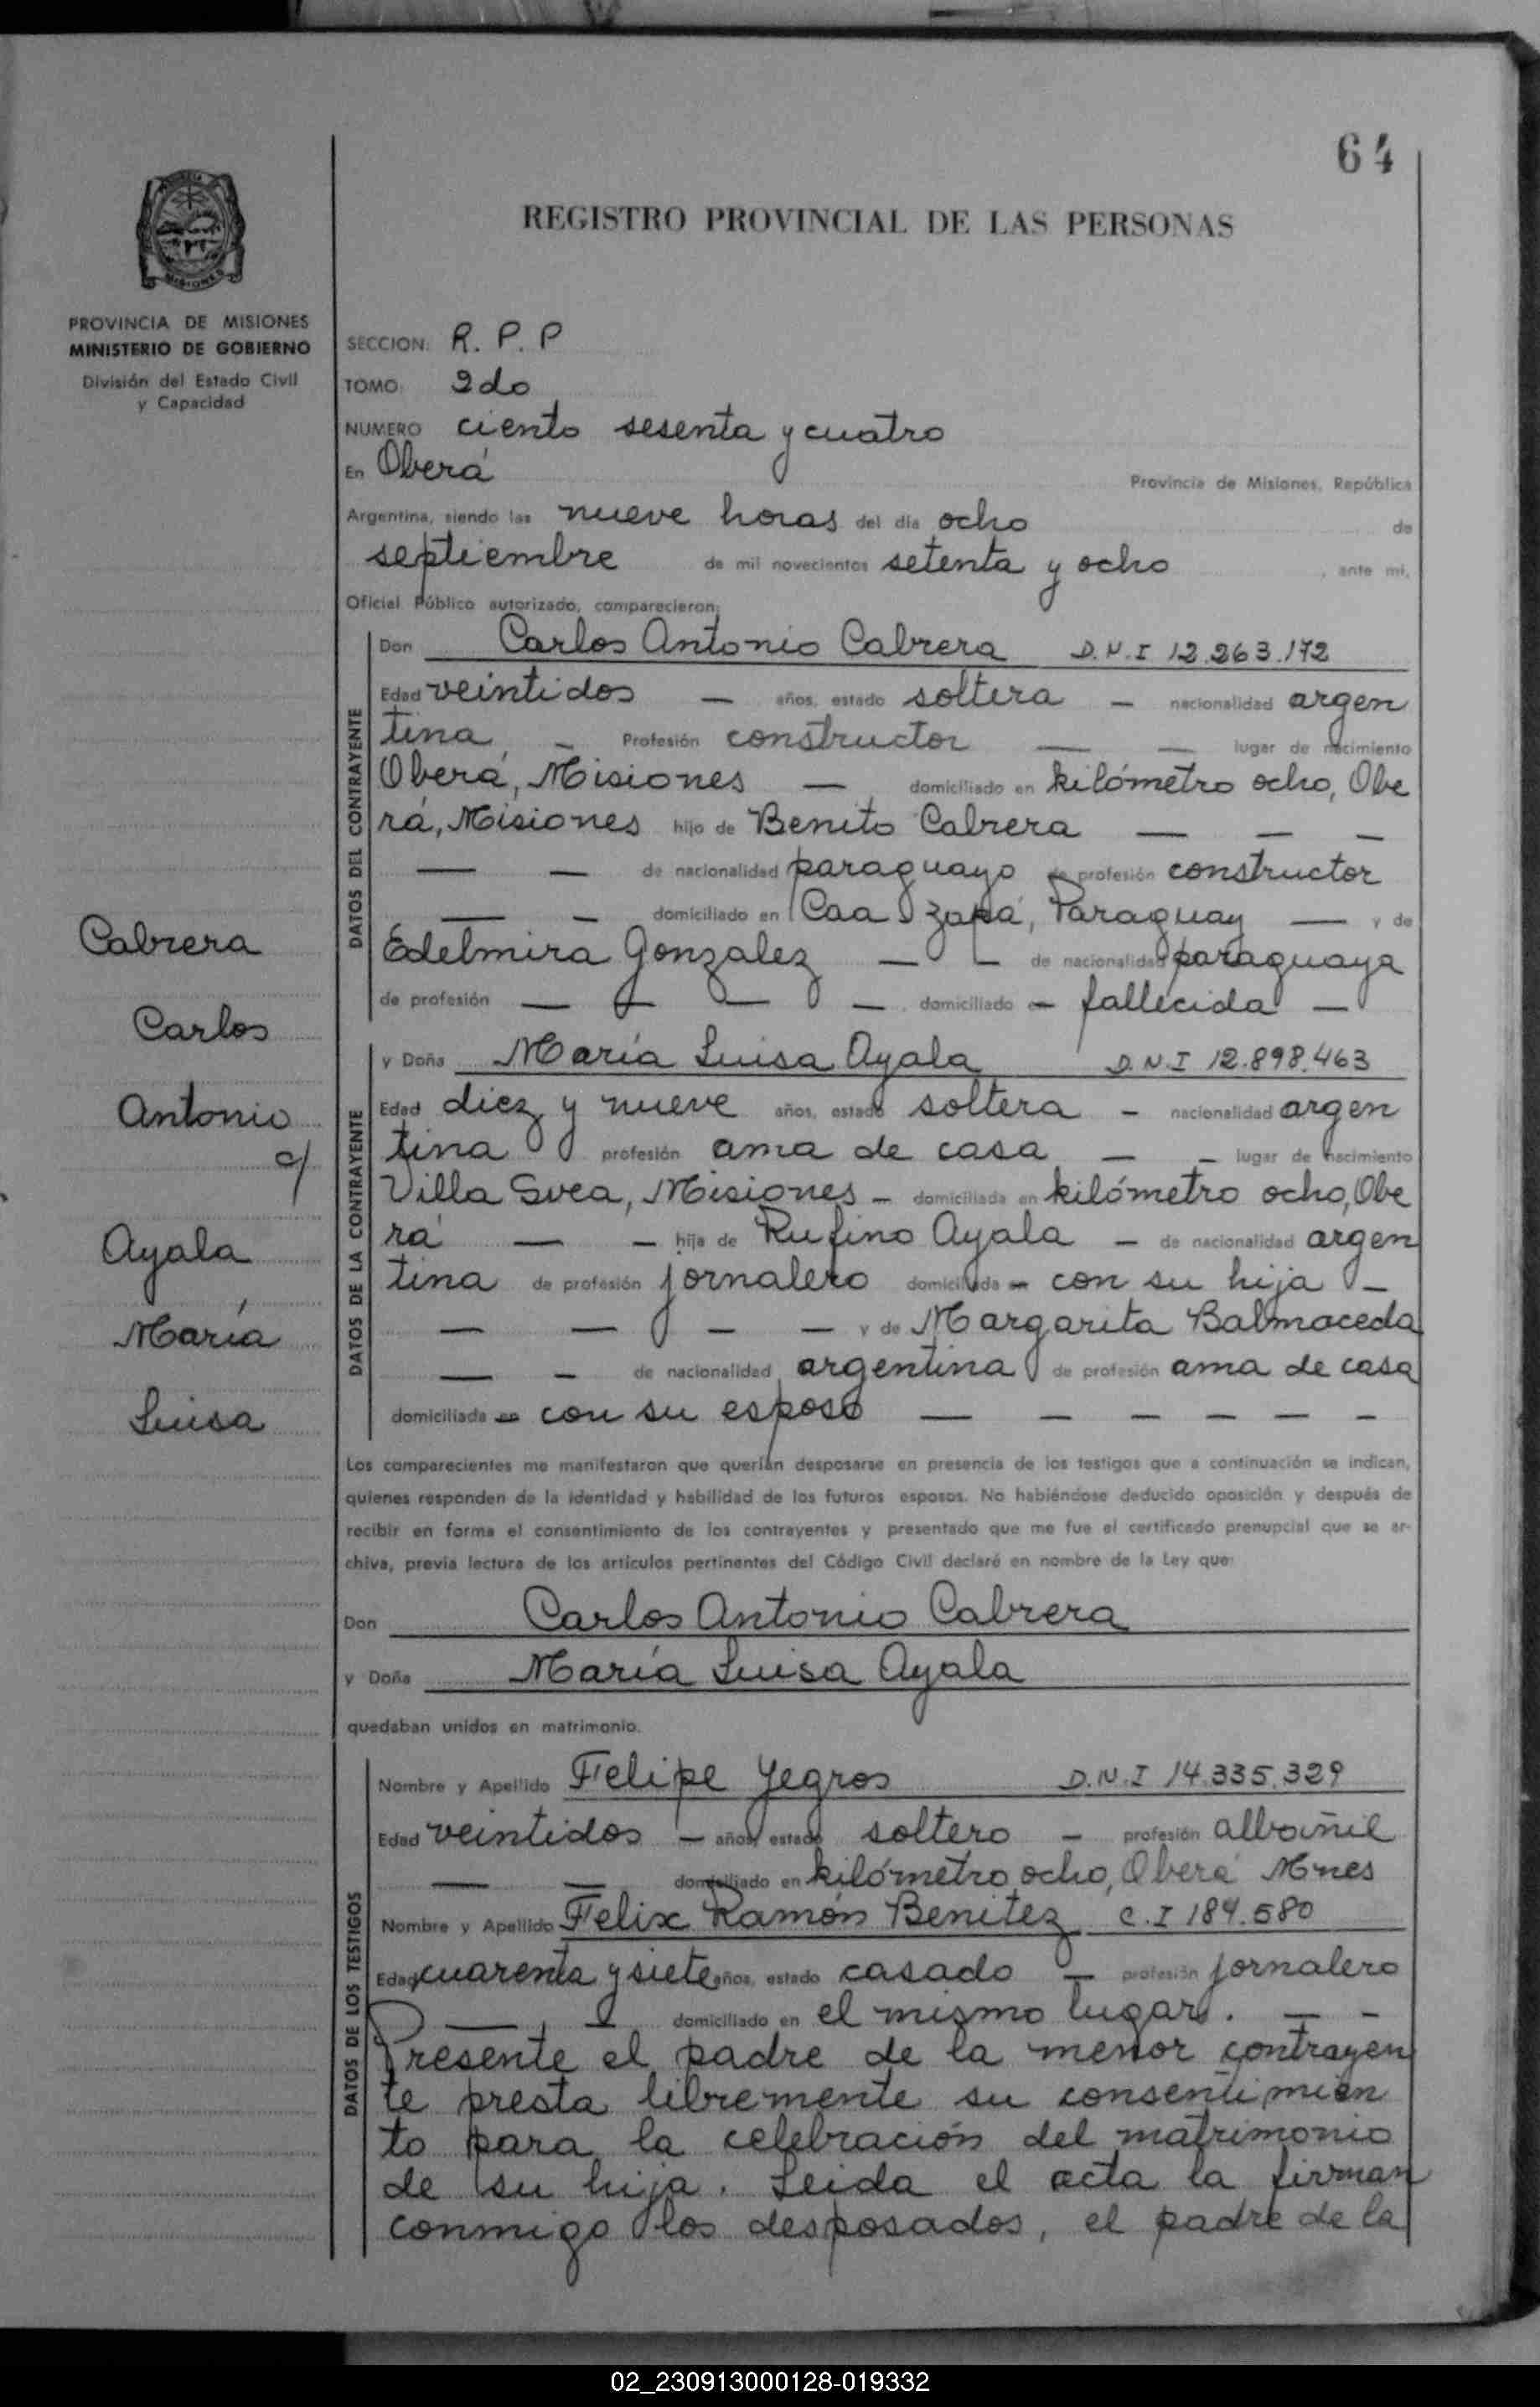 64
REGISTRO PROVINCIAL DE LAS PERSONAS
PROVINCIA DE MISIONES
MINISTERIO DE GOBIERNO
División del Estado Civil
y Capacidad
SECCION: R. P. P
TOMO: 2do
NUMERO ciento sesenta y cuatro
En Oberá Provincia de Misiones, República
Argentina, siendo las nueve horas del día ocho de
septiembre de mil novecientos setenta y ocho, ante mi,
Oficial Público autorizado, comparecieron:
DATOS DEL CONTRAYENTE
Don Carlos Antonio Cabrera D.N.I 12.263.172
Edad veintidos — años, estado soltera — nacionalidad argen
tina — Profesión constructor — — lugar de nacimiento
Oberá, Misiones — domiciliado en kilómetro ocho, Obe
rá, Misiones hijo de Benito Cabrera — — —
— — de nacionalidad paraguayo de profesión constructor
— — domiciliado en Caa zapá, Paraguay — y de
Edelmira Gonzalez — — de nacionalidad paraguaya
de profesión — — — — domiciliado — fallecida —
DATOS DE LA CONTRAYENTE
y Doña María Luisa Ayala D.N.I 12.898.463
Edad diez y nueve años, estado soltera — nacionalidad argen
tina profesión ama de casa — — lugar de nacimiento
Villa Svea, Misiones — domiciliada en kilómetro ocho, Obe
rá — — hija de Rufino Ayala — de nacionalidad argen
tina de profesión jornalero domiciliada — con su hija —
— — — — y de Margarita Balmaceda
— — de nacionalidad argentina de profesión ama de casa
domiciliada en con su esposo — — — — — —
Los comparecientes me manifestaron que querían desposarse en presencia de los testigos que a continuación se indican,
quienes responden de la identidad y habilidad de los futuros esposos. No habiéndose deducido oposición y después de
recibir en forma el consentimiento de los contrayentes y presentado que me fue el certificado prenupcial que se ar-
chiva, previa lectura de los artículos pertinentes del Código Civil declaré en nombre de la Ley que:
Don Carlos Antonio Cabrera
y Doña María Luisa Ayala
quedaban unidos en matrimonio.
DATOS DE LOS TESTIGOS
Nombre y Apellido Felipe Yegros D.N.I 14.335.329
Edad veintidos — años, estado soltero — profesión albañil
— — domiciliado en kilómetro ocho, Oberá Mnes
Nombre y Apellido Felix Ramón Benitez C.I 184.580
Edad cuarenta y siete años, estado casado — profesión jornalero
— — domiciliado en el mismo lugar. — —
Presente el padre de la menor contrayen
te presta libremente su consentimien
to para la celebración del matrimonio
de su hija. Leida el acta la firman
conmigo los desposados, el padre de la
Cabrera
Carlos
Antonio
c/
Ayala
María
Luisa
02_230913000128-019332